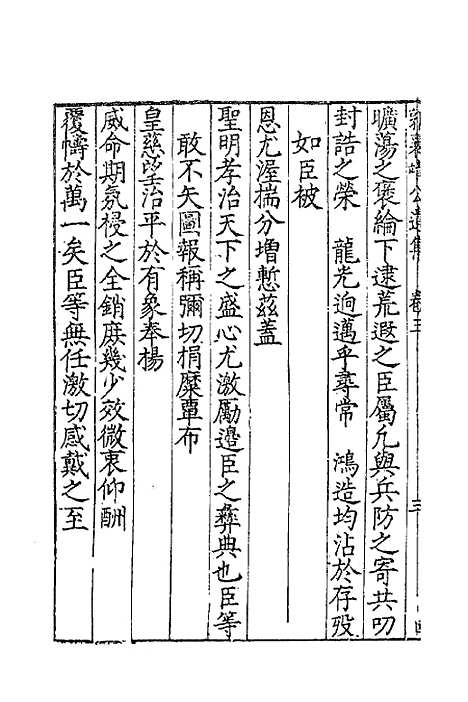 曠蕩之褒綸下逮荒遐之臣屬凡與兵防之寄共叨
封誥之榮　龍光逈邁乎尋常　鴻造均沾於存歿
如臣被
恩尤渥揣分增慙茲蓋
聖明孝治天下之盛心尤激勵邊臣之彝典也臣等
敢不矢圖報稱彌切捐糜覃布
皇慈跂至治平於有象奉揚
威命期氛祲之全銷庶幾少效微衷仰酬
覆幬於萬一矣臣等無任激切感戴之至